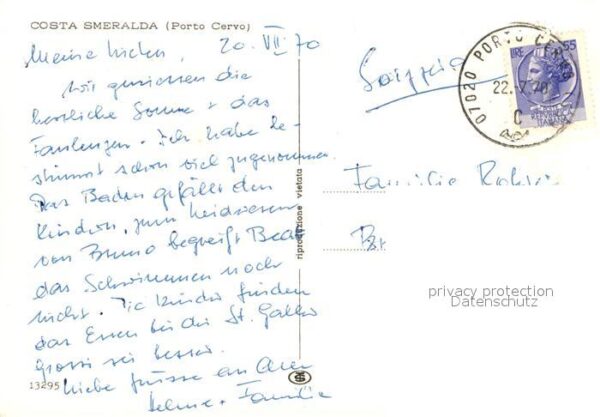 COSTA SMERALDA (Porto Cervo)
Meine Lieben, 20. VII 70
Wir geniessen die
herrliche Sonne + das
Faulenzen. Ich habe be-
stimmt schon viel zugenommen.
Das Baden gefällt den
Kindern, zum Leidwesen
von Bruno begreift Beat
das Schwimmen noch
nicht. Die Kinder finden
das Essen bei der St. Galler
Grossi sei besser.
Liebe Grüsse an Alle
+ Familie
13295
riproduzione vietata
Svizzera
07020 PORTO CERVO
22.7.70
C
LIRE 55
ITALIANA
Familie
privacy protection
Datenschutz